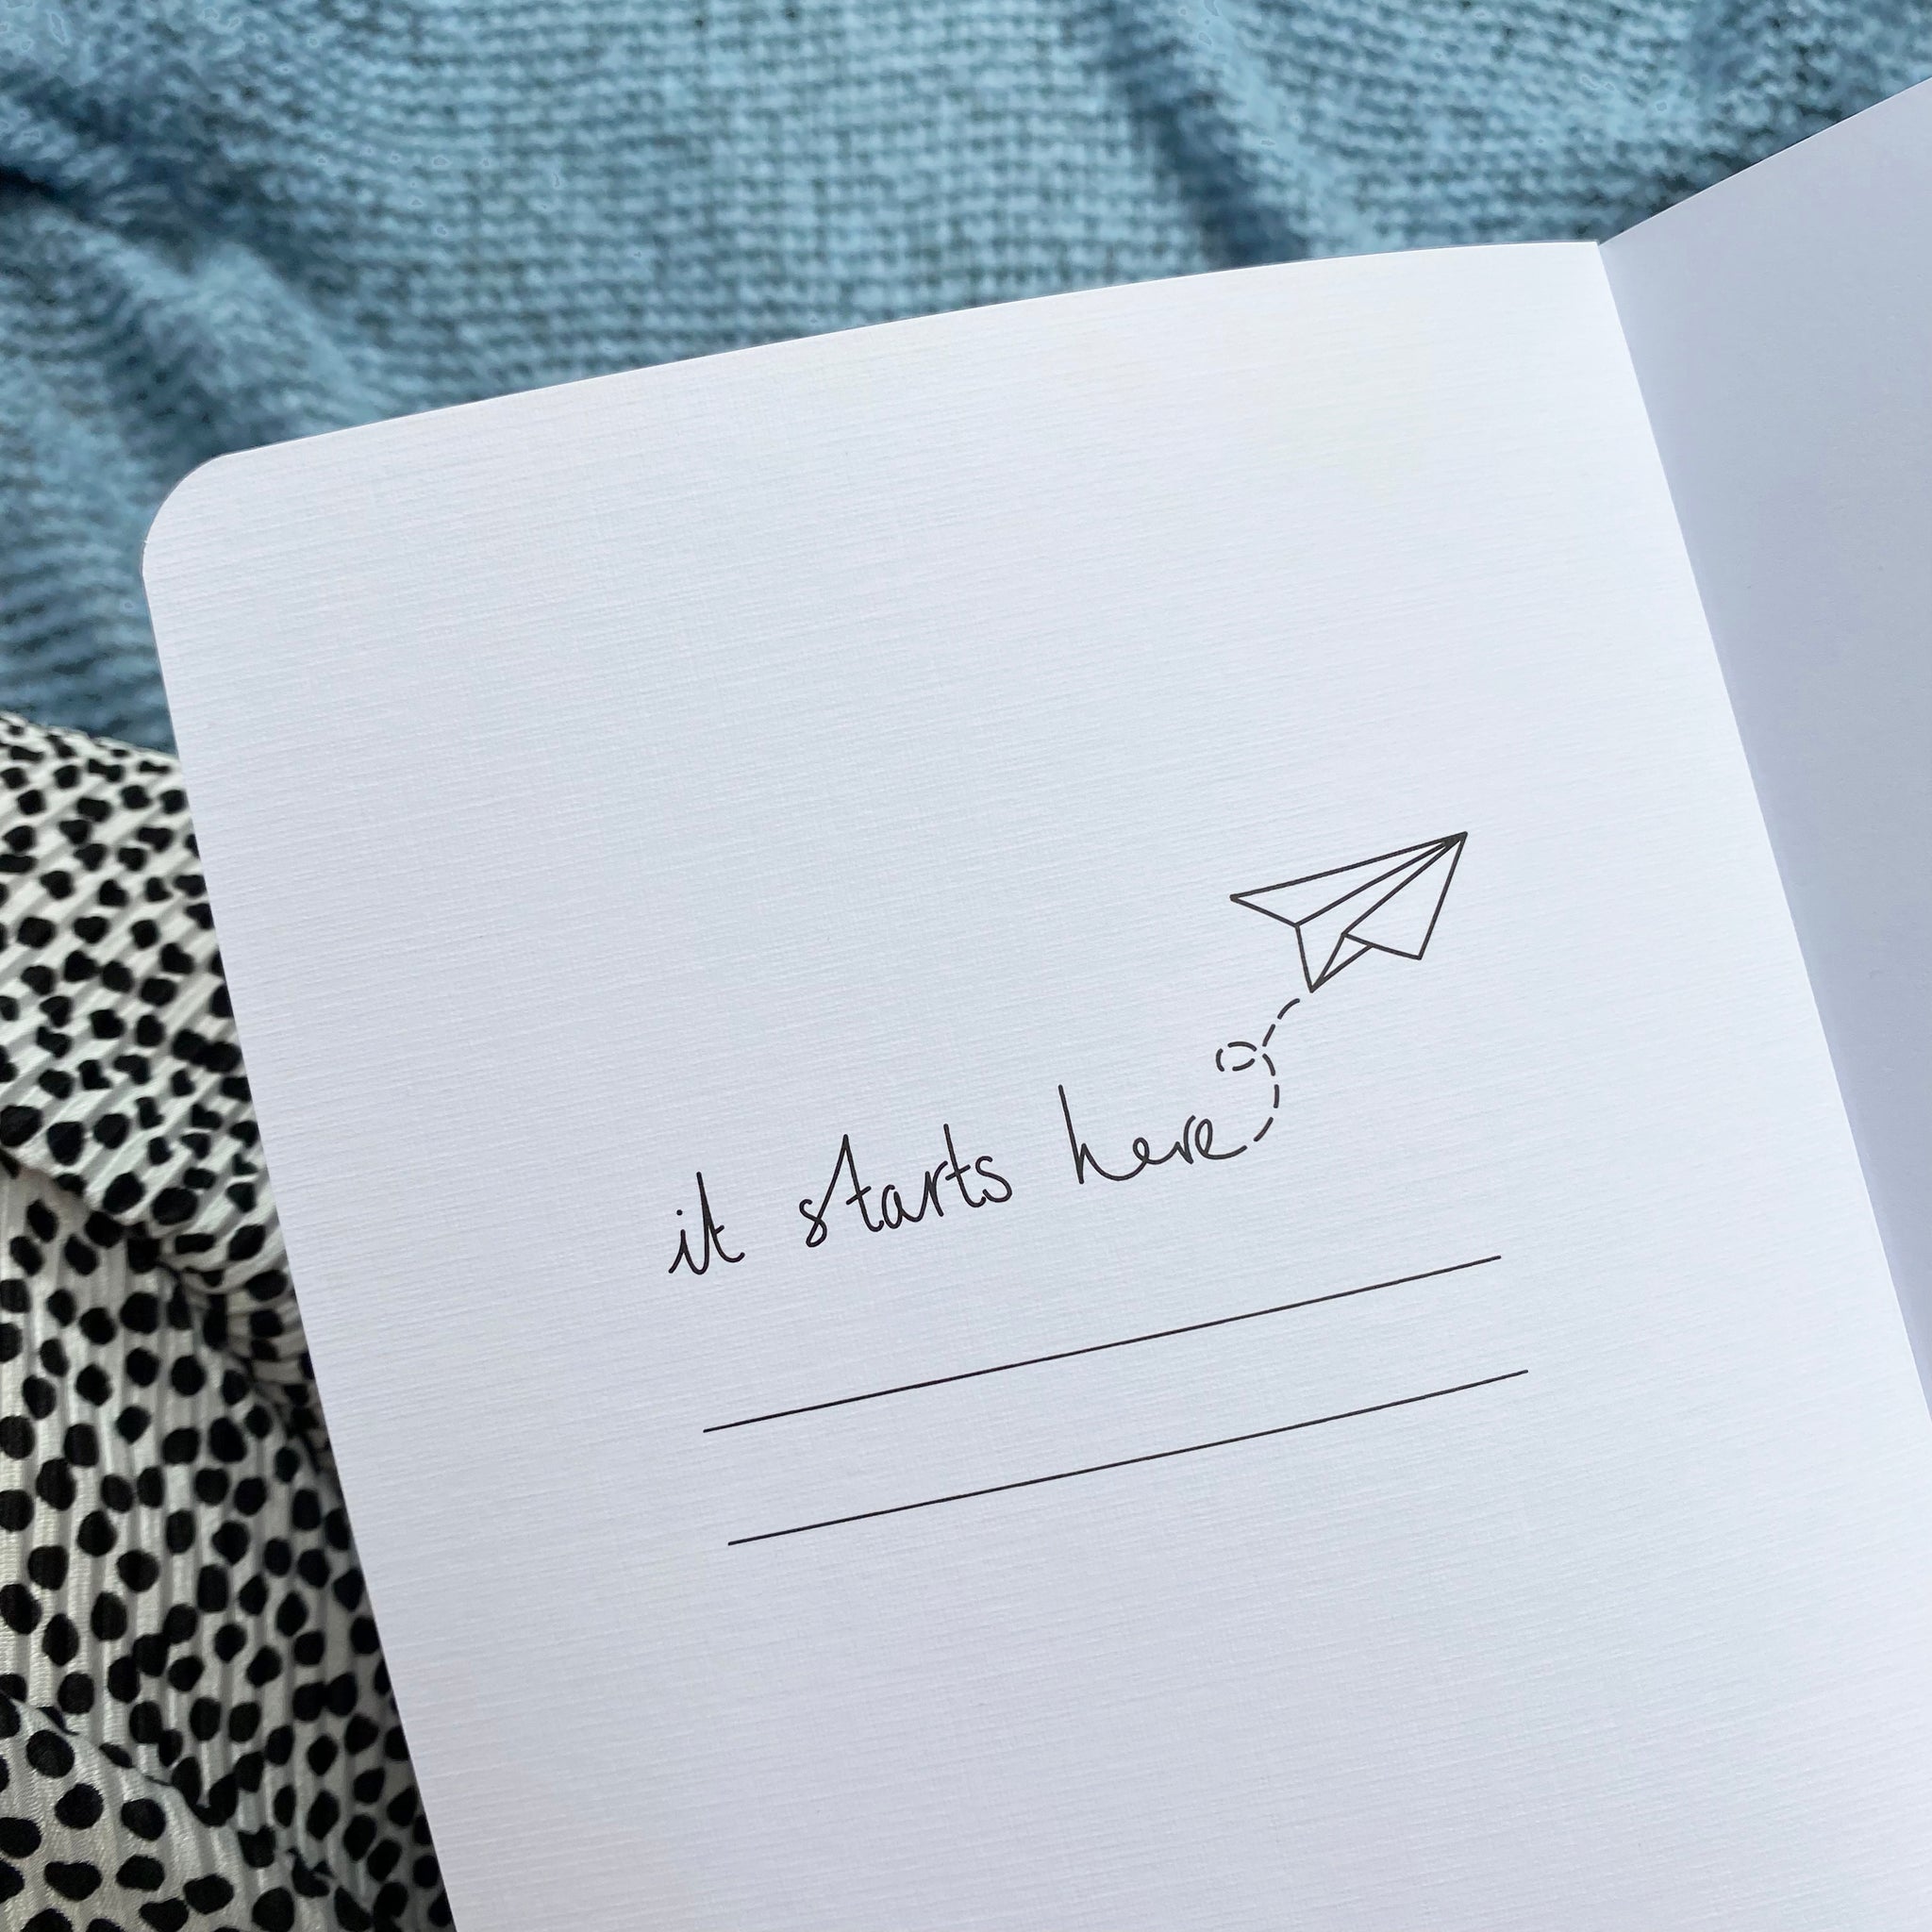 it starts here